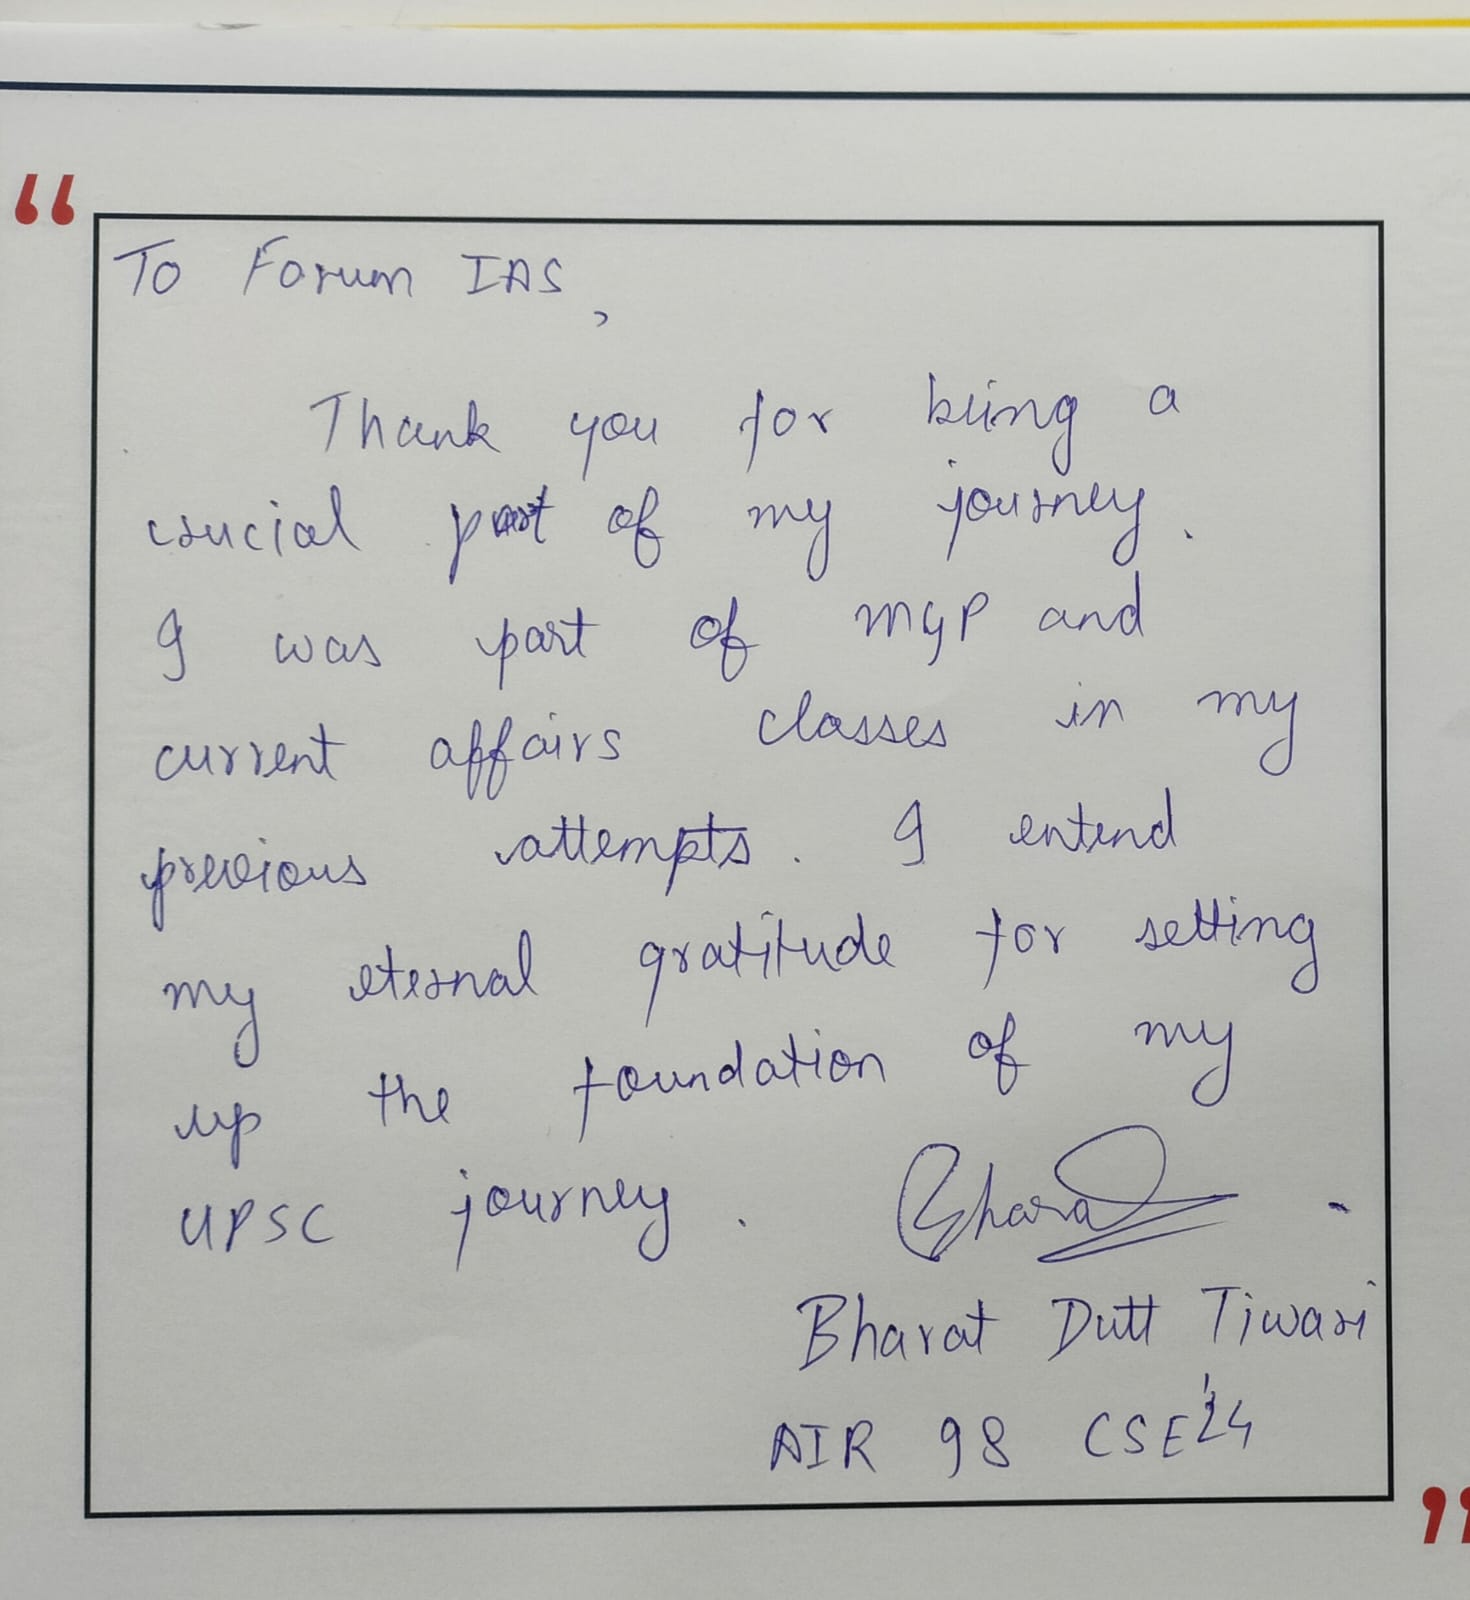 “
To Forum IAS,
Thank you for being a
crucial part of my journey.
I was part of MGP and
current affairs classes in my
previous attempts. I extend
my eternal gratitude for setting
up the foundation of my
UPSC journey. Bharat
Bharat Dutt Tiwari
AIR 98 CSE'24
”